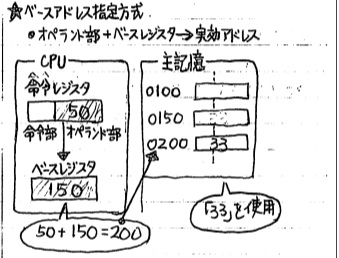 ☆ベースアドレス指定方式
●オペランド部+ベースレジスタ→実効アドレス
CPU
命令レジスタ
50
命令部 オペランド部
ベースレジスタ
150
50+150=200
主記憶
0100
0150
0200 33
「33」を使用